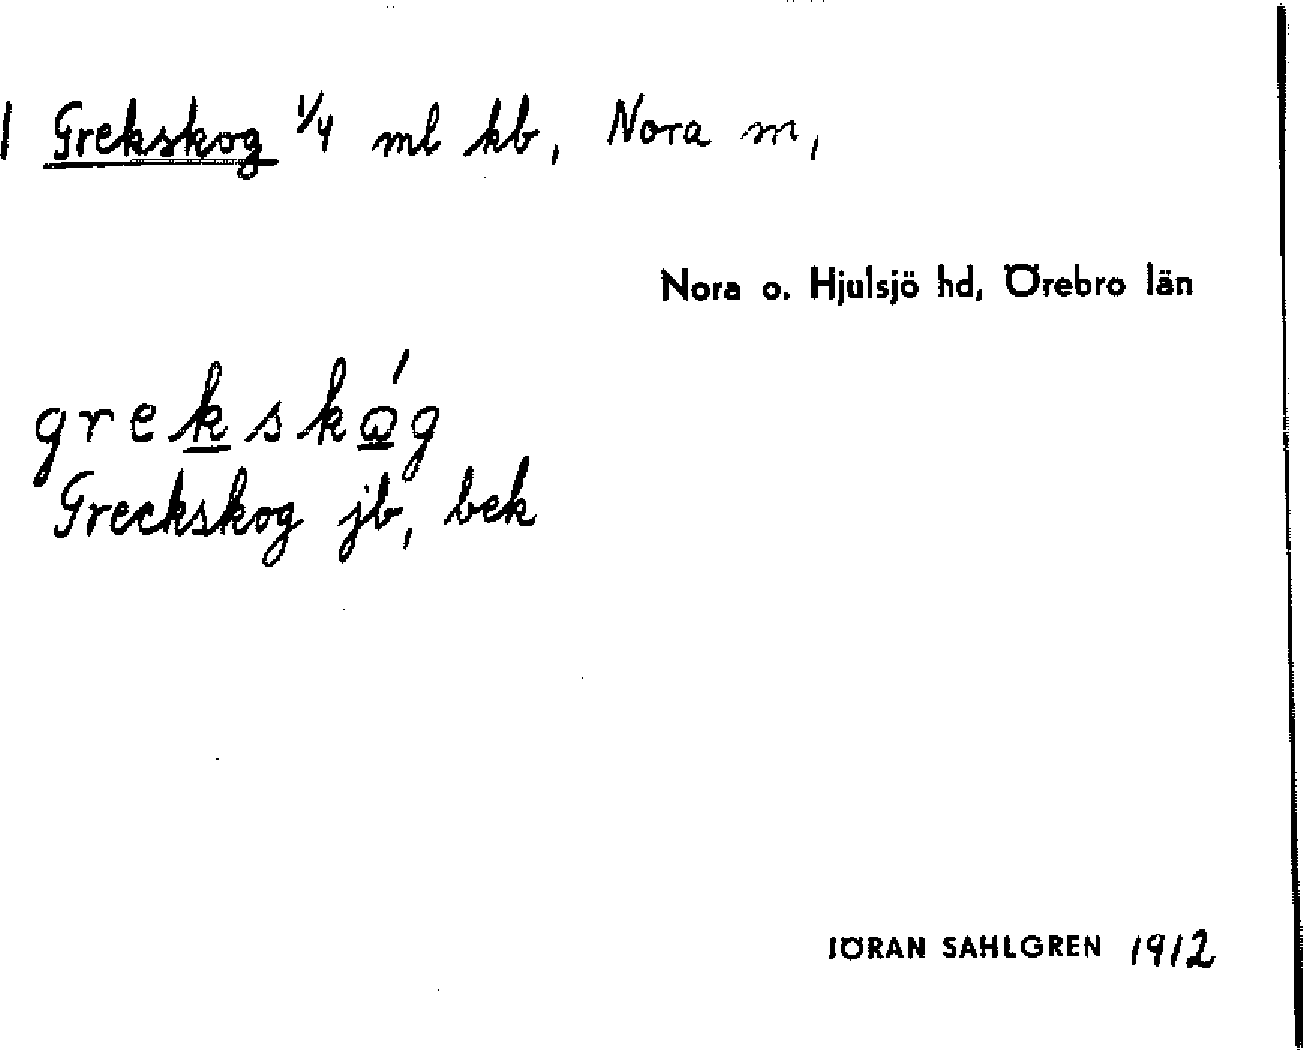 1 Grekskog 1/4 ml kb, Nora m,
Nora o. Hjulsjö hd, Örebro län
grekskóg
Greckskog jb, bek
JÖRAN SAHLGREN 1912